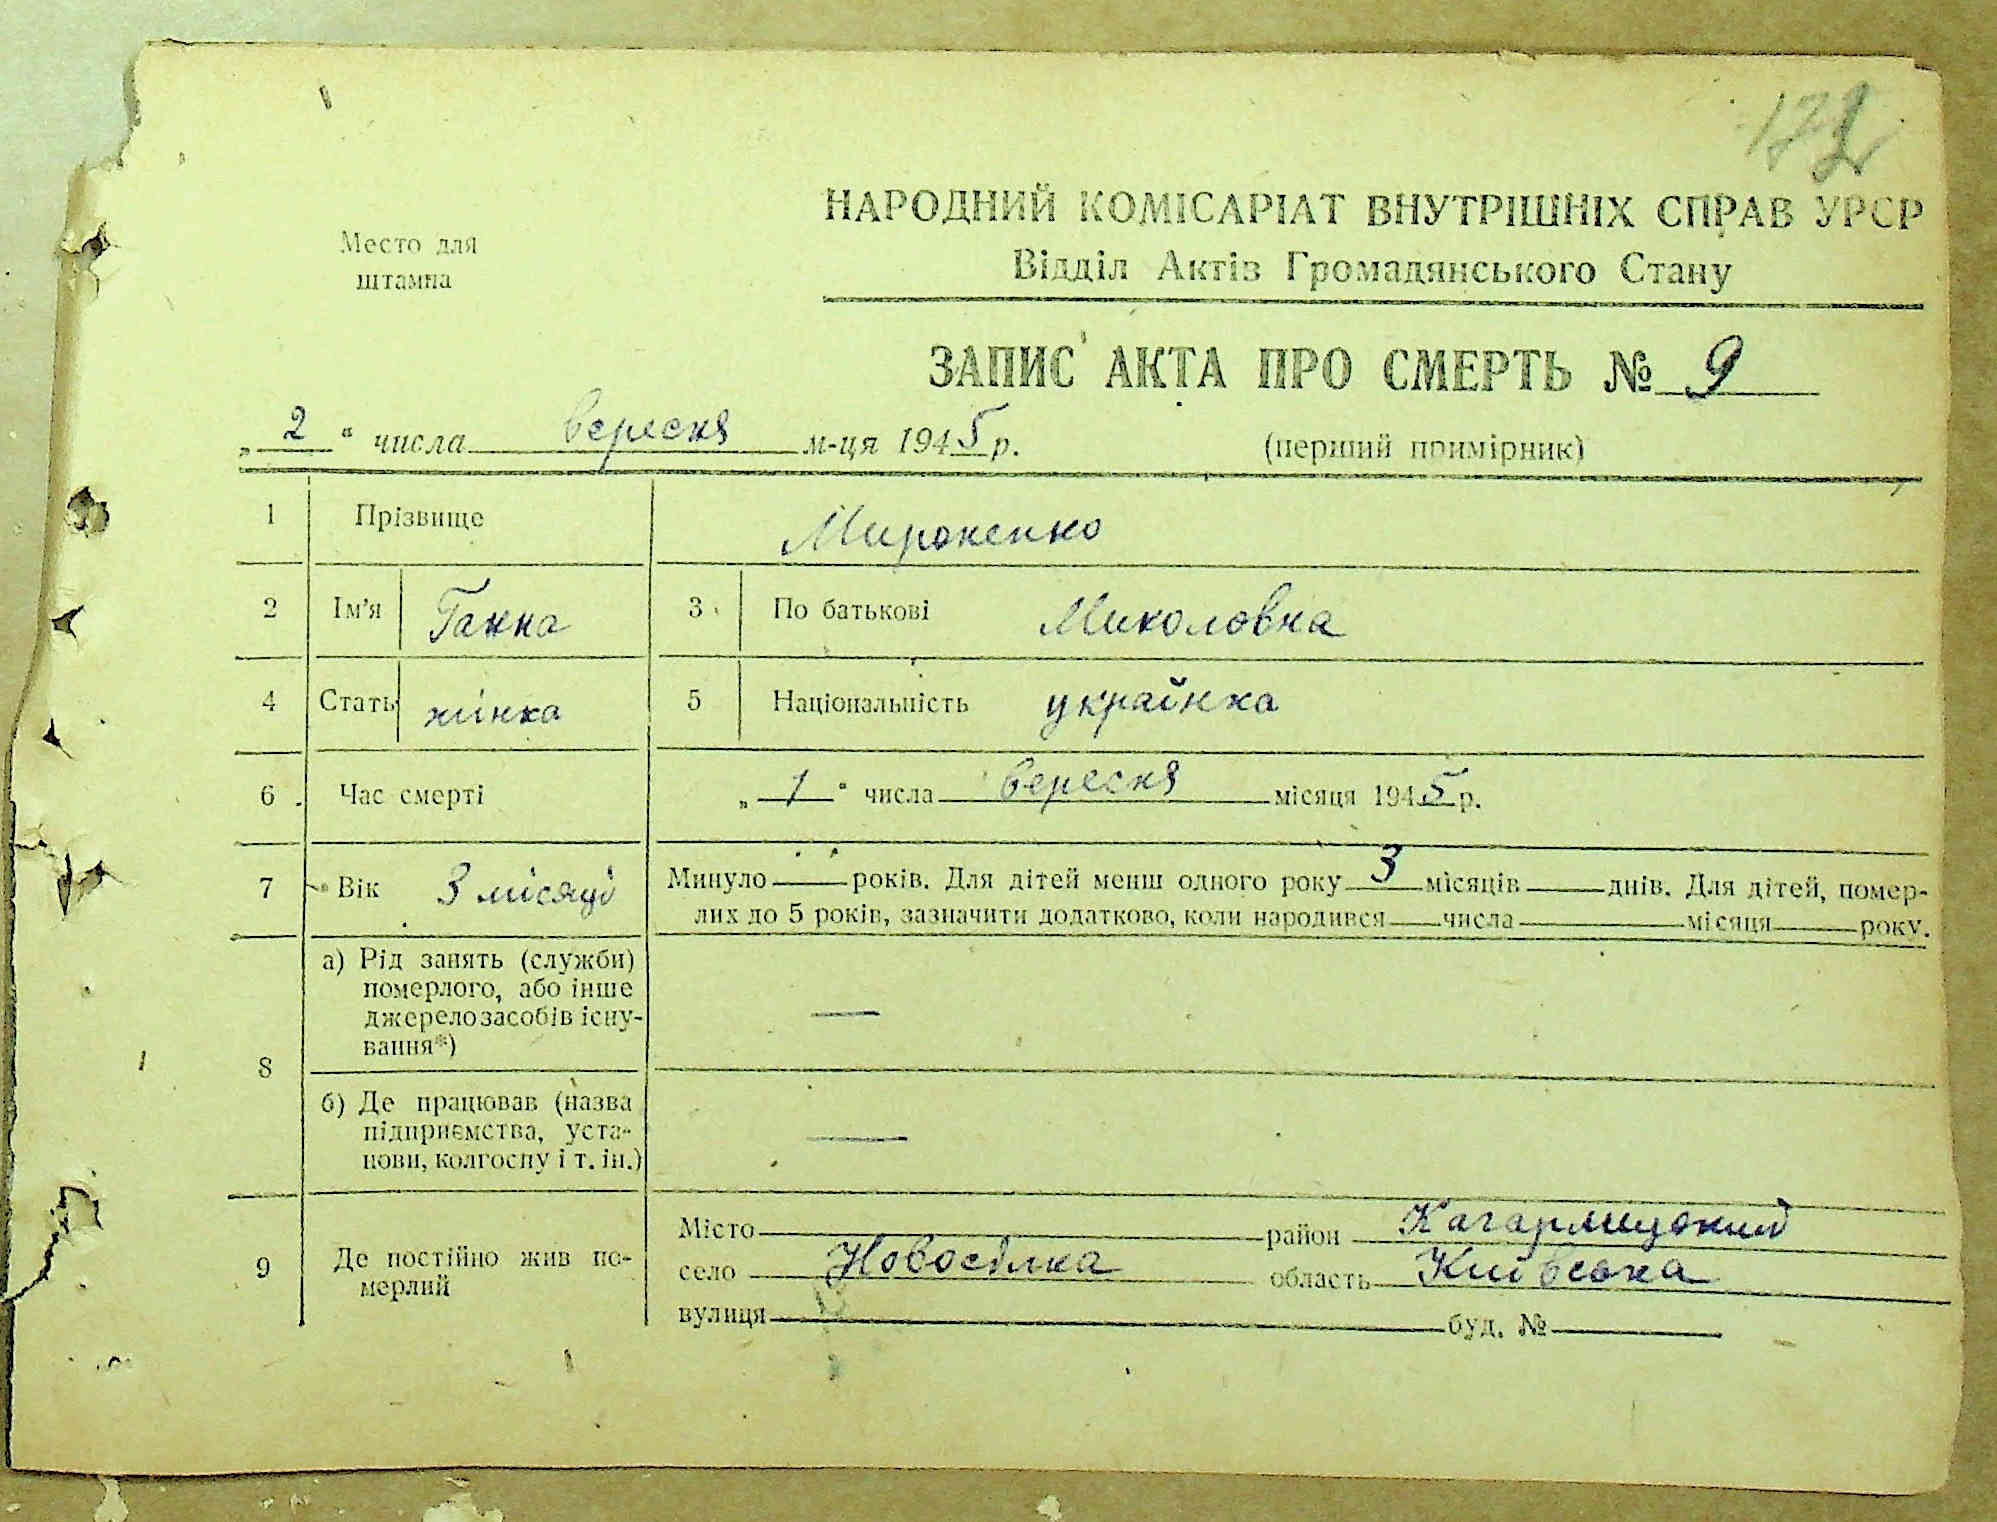 Место для
штампа
НАРОДНИЙ КОМІСАРІАТ ВНУТРІШНІХ СПРАВ УРСР
Відділ Актів Громадянського Стану
ЗАПИС АКТА ПРО СМЕРТЬ № 9
„2“ числа вересня м-ця 1945 р.
(перший примірник)
1 Прізвище Мироненко
2 Ім'я Ганна 3 По батькові Миколовна
4 Стать жінка 5 Національність українка
6 Час смерті „1“ числа вересня місяця 1945 р.
7 Вік 3 місяці Минуло — років. Для дітей менш одного року 3 місяців — днів. Для дітей, помер-
лих до 5 років, зазначити додатково, коли народився — числа — місяця — року.
8 а) Рід занять (служби)
померлого, або інше
джерело засобів існу-
вання*) —
б) Де працював (назва
підприємства, уста-
нови, колгоспу і т. ін.) —
9 Де постійно жив по-
мерлий
Місто район Кагарлицький
село Новосілка область Київська
вулиця буд. №